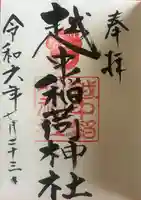 奉拝
越中稲荷神社
令和六年七月二十三日